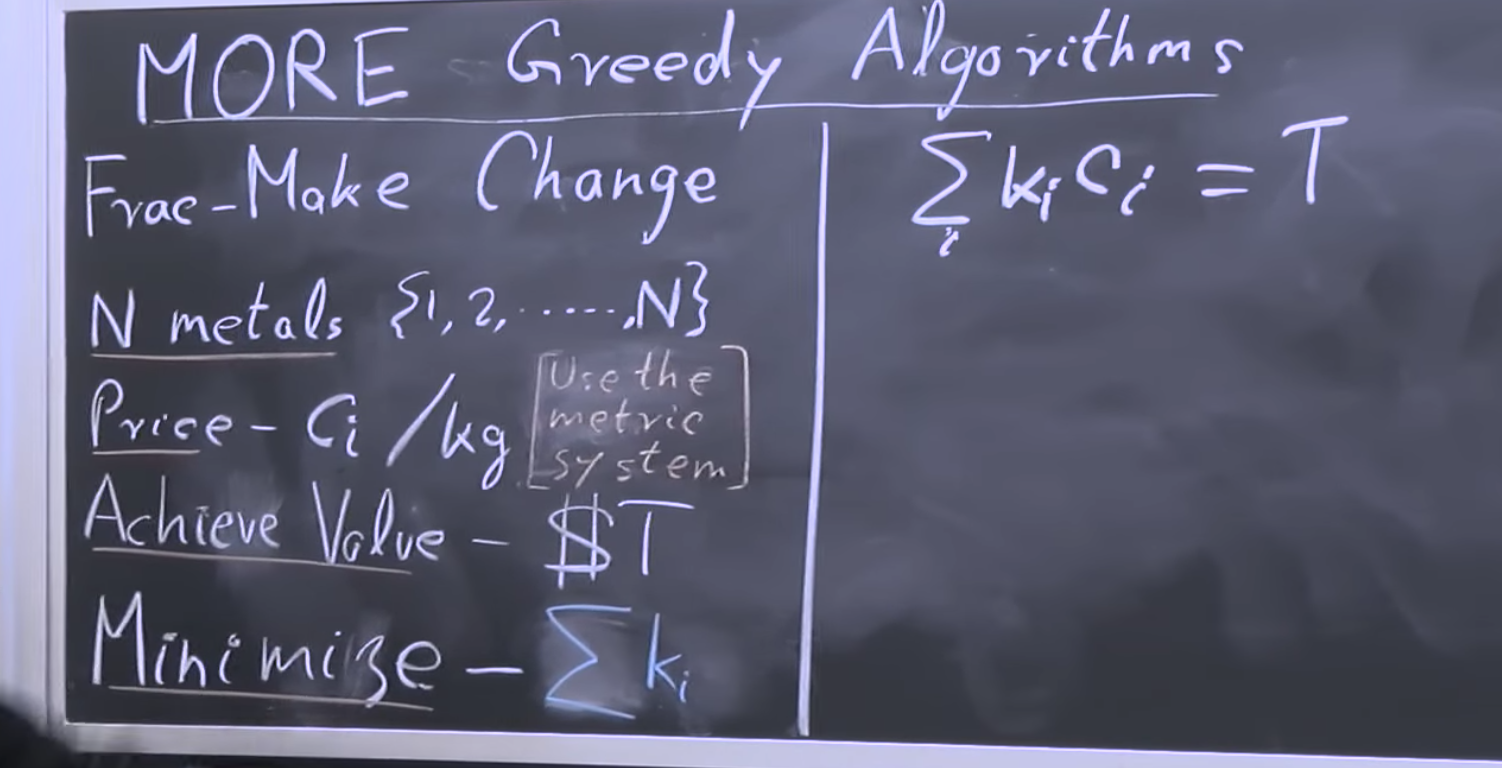 MORE Greedy Algorithms
Frac-Make Change
N metals {1, 2, ......, N}
Price - Ci /kg [Use the
metric
system]
Achieve Value - $T
Minimize - ∑ ki
∑ ki ci = T
i